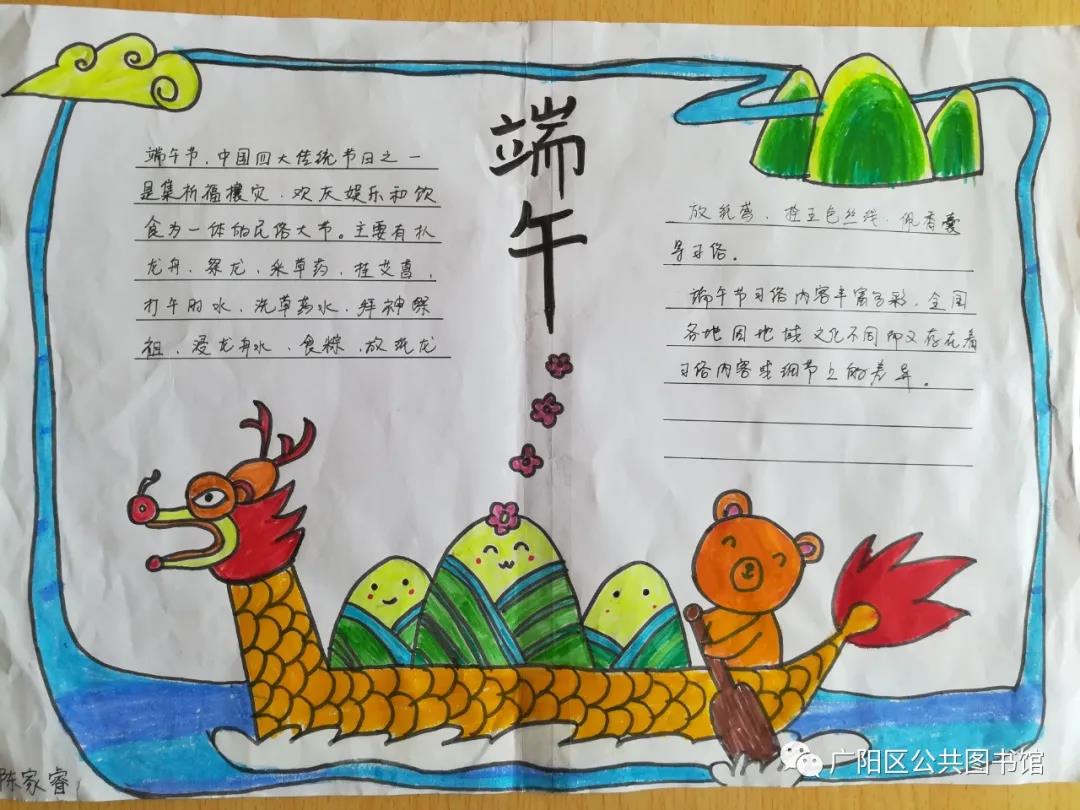 端午
端午节,中国四大传统节日之一
是集祈福攘灾、欢庆娱乐和饮
食为一体的民俗大节。主要有扒
龙舟、祭龙、采草药、挂艾蒿、
打午时水、洗草药水、拜神祭
祖、浸龙舟水、食粽、放纸龙
放纸鸢、拴五色丝线、佩香囊
等习俗。
端午节习俗内容丰富多彩,全国
各地因地域文化不同而又存在着
习俗内容或细节上的差异。
陈家睿
广阳区公共图书馆